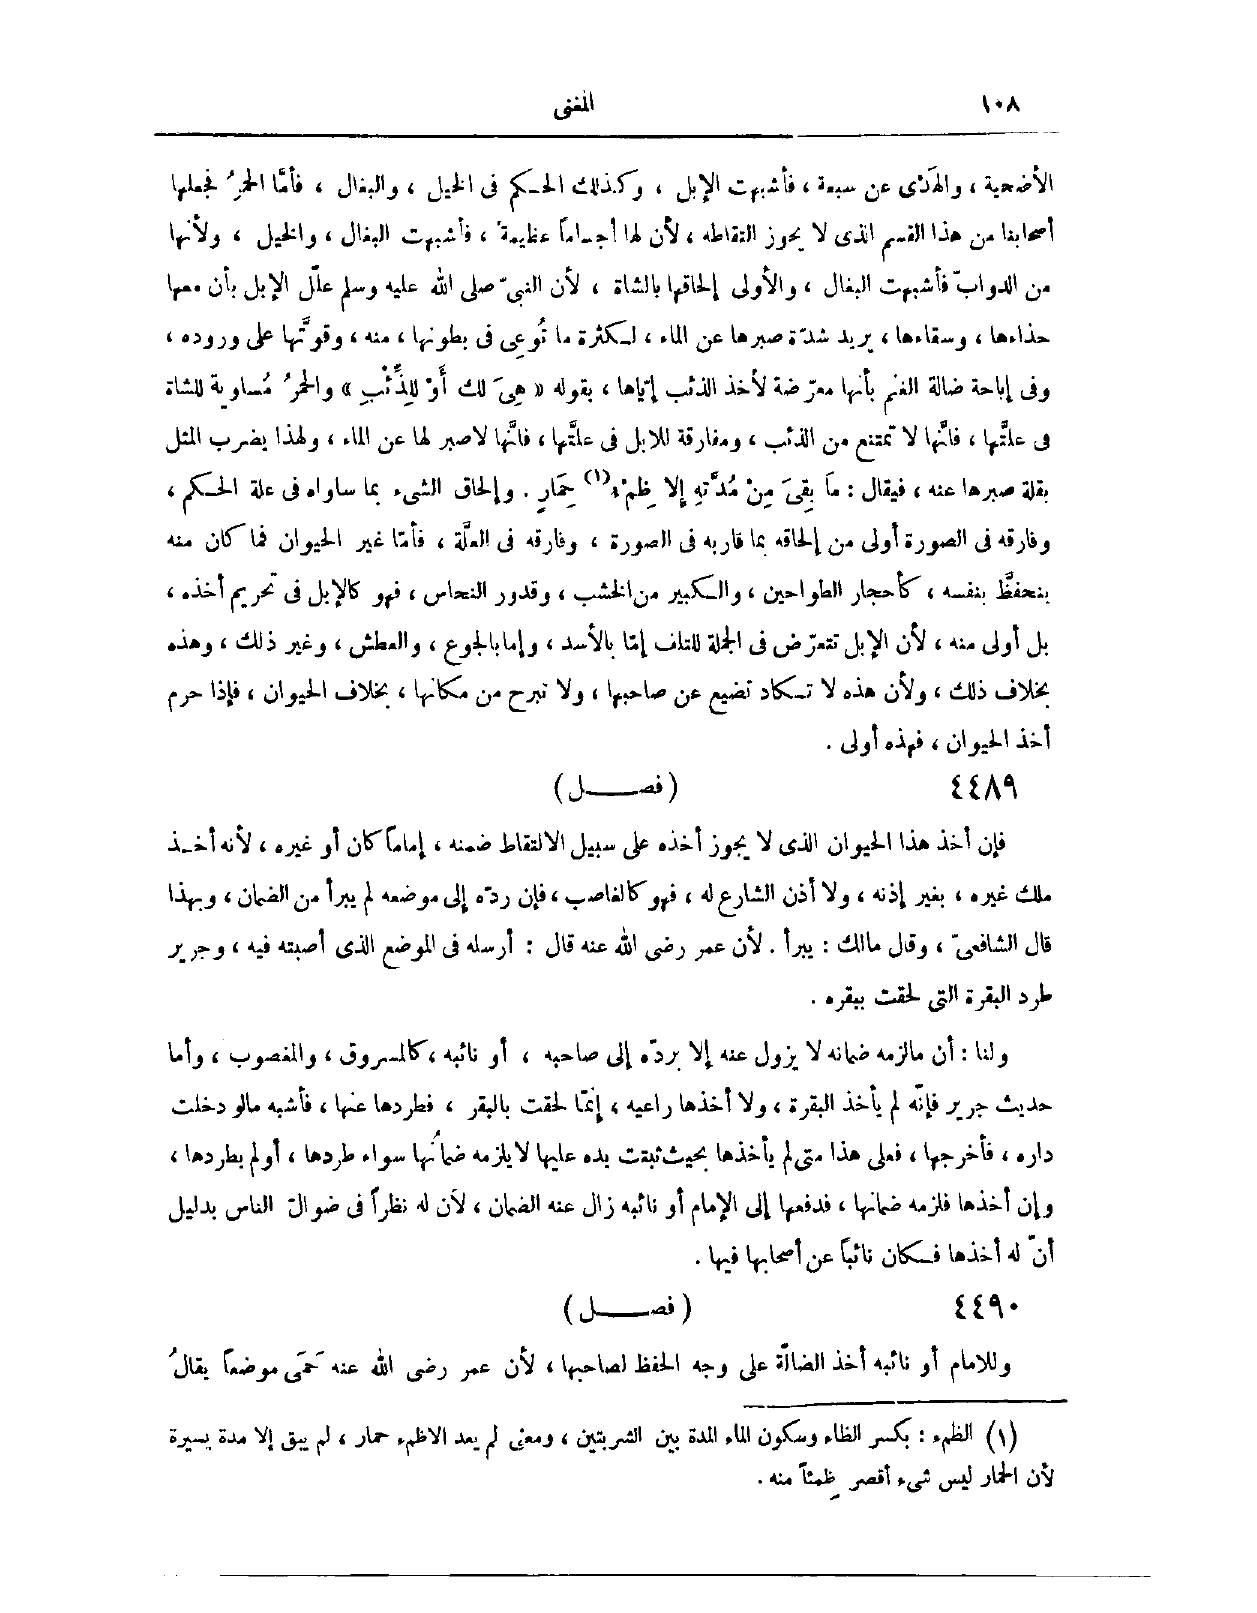 ١٠٨
المغنى
الأضحية ، والهَدْى عن سبعة ، فأشبهت الإبل ، وكذلك الحكم فى الخيل ، والبغال ، فأمَّا الحمرُ فجعلها
أصحابنا من هذا القسم الذى لا يجوز التقاطه ، لأن لها أجساماً عظيمة ، فأشبهت البغال ، والخيل ، ولأنها
من الدوابّ فأشبهت البغال ، والأولى إلحاقها بالشاة ، لأن النبىّ صلى الله عليه وسلم علّل الإبل بأن معها
حذاءها ، وسقاءها ، يريد شدّة صبرها عن الماء ، لكثرة ما تُوعِى فى بطونها ، منه ، وقوتَّها على وروده ،
وفى إباحة ضالة الغنم بأنها معرّضة لأخذ الذئب إيّاها ، بقوله « هِىَ لك أَوْ لِلذِّئْبِ » والحمرُ مُساوية للشاة
فى علتَّها ، فانَّها لا تمتنع من الذئب ، ومفارقة للابل فى علتَّها ، فانَّها لاصبر لها عن الماء ، ولهذا يضرب المثل
بقلة صبرها عنه ، فيقال : مَا بَقِىَ مِنْ مُدَّتِهِ إلا ظِمْء(١) حِمَارٍ . وإلحاق الشىء بما ساواه فى علة الحكم ،
وفارقه فى الصورة أولى من إلحاقه بما قاربه فى الصورة ، وفارقه فى العلّة ، فأمّا غير الحيوان فما كان منه
ينحفظَّ بنفسه ، كأحجار الطواحين ، والكبير من الخشب ، وقدور النحاس ، فهو كالإبل فى تحريم أخذه ،
بل أولى منه ، لأن الإبل تتعرّض فى الجملة للتلف إمّا بالأسد ، وإما بالجوع ، والعطش ، وغير ذلك ، وهذه
بخلاف ذلك ، ولأن هذه لا تكاد تضيع عن صاحبها ، ولا تبرح من مكانها ، بخلاف الحيوان ، فإذا حرم
أخذ الحيوان ، فهذه أولى .
٤٤٨٩ (فصـــل)
فإن أخذ هذا الحيوان الذى لا يجوز أخذه على سبيل الالتقاط ضمنه ، إماماً كان أو غيره ، لأنه أخـذ
ملك غيره ، بغير إذنه ، ولا أذن الشارع له ، فهو كالغاصب ، فإن ردّه إلى موضعه لم يبرأ من الضمان ، وبهذا
قال الشافعىّ ، وقال مالك : يبرأ . لأن عمر رضى الله عنه قال : أرسله فى الموضع الذى أصبته فيه ، وجرير
طرد البقرة التى لحقت ببقره .
ولنا : أن مالزمه ضمانه لا يزول عنه إلا بردّه إلى صاحبه ، أو نائبه ، كالمسروق ، والمغصوب ، وأما
حديث جرير فإنّه لم يأخذ البقرة ، ولا أخذها راعيه ، إنمّا لحقت بالبقر ، فطردها عنها ، فأشبه مالو دخلت
داره ، فأخرجها ، فعلى هذا متى لم يأخذها بحيث ثبتت يده عليها لا يلزمه ضمانُها سواء طردها ، أولم يطردها ،
وإن أخذها فلزمه ضمانها ، فدفعها إلى الإمام أو نائبه زال عنه الضمان ، لأن له نظراً فى ضوالّ الناس بدليل
أنّ له أخذها فكان نائباً عن أصحابها فيها .
٤٤٩٠ (فصـــل)
وللامام أو نائبه أخذ الضالّة على وجه الحفظ لصاحبها ، لأن عمر رضى الله عنه حَمَى موضعاً يقالُ
(١) الظمء : بكسر الظاء وسكون الماء المدة بين الشربتين ، ومعنى لم يعد الاظمء حمار ، لم يبق إلا مدة يسيرة
لأن الحمار ليس شىء أقصر ظِمئاً منه .